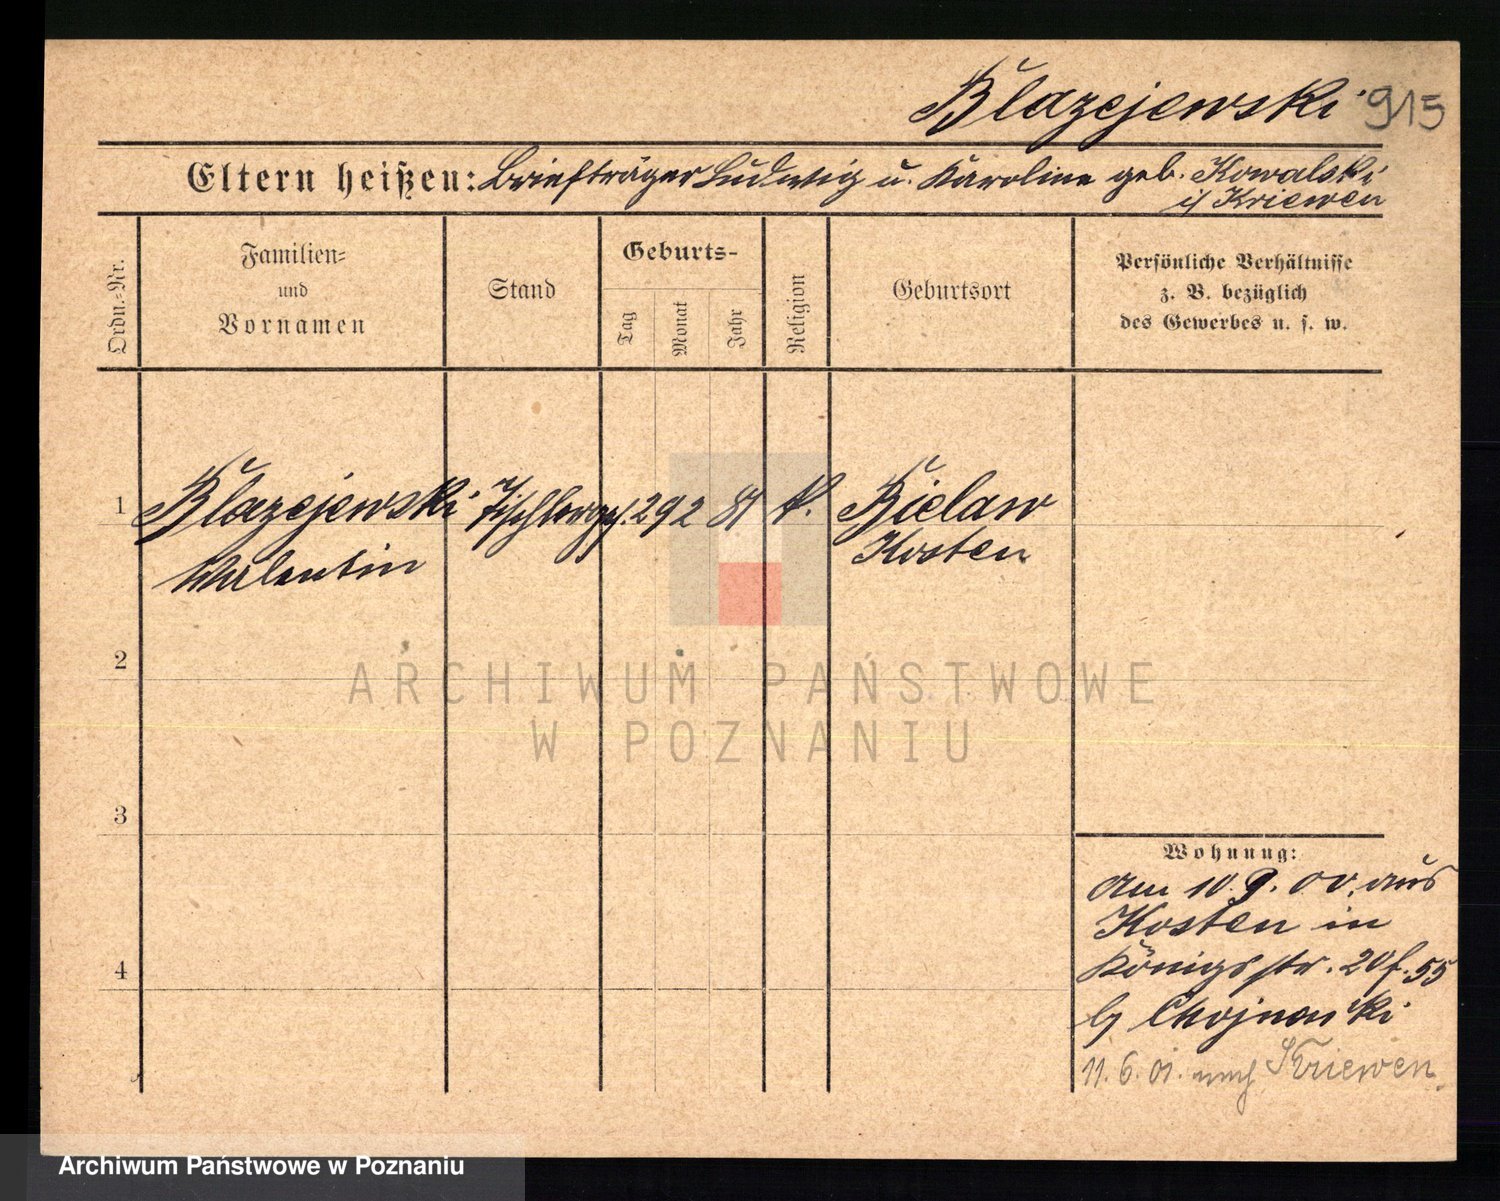 Blazejewski 915
Eltern heißen: Briefträger Ludwig u. Karoline geb. Kowalski
i/ Kriewen
Ordn.-Nr.
Familien-
und
Vornamen
Stand
Geburts-
Tag
Monat
Jahr
Religion
Geburtsort
Persönliche Verhältnisse
z. B. bezüglich
des Gewerbes u. s. w.
1 Blazejewski Tischlerges. 29 2 81 k. Bielaw
Valentin Kosten
2
3
4
Wohnung:
Am 10.9.00. aus
Kosten in
Königsstr. 20 f. 55
b/ Chojnowski
11.6.01. nach Kriewen.
ARCHIWUM PAŃSTWOWE
W POZNANIU
Archiwum Państwowe w Poznaniu